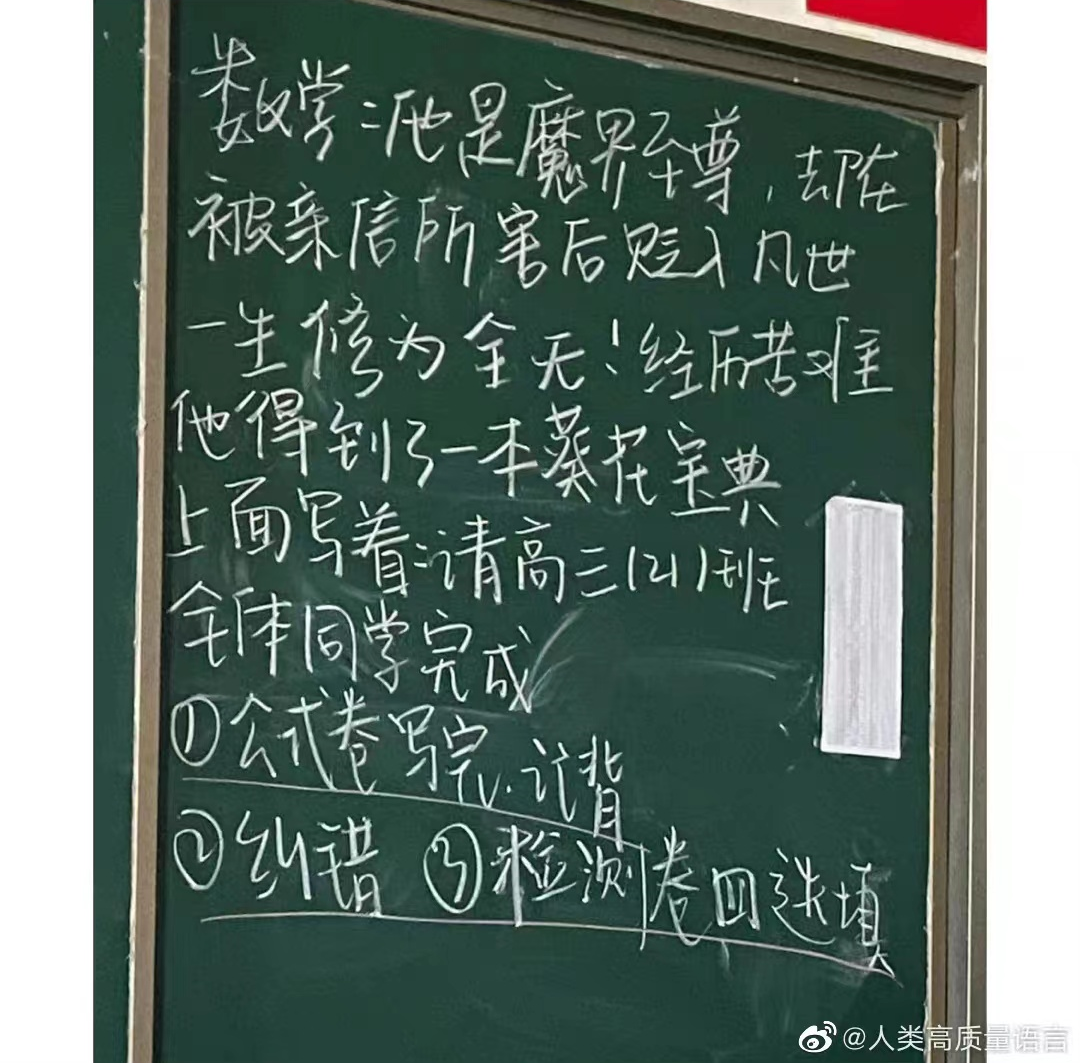 数学：他是魔界至尊，却在
被亲信所害后贬入凡世
一生修为全无！经历苦难
他得到了一本葵花宝典
上面写着：请高三（21）班
全体同学完成
①公式卷写完，记背
②纠错 ③检测卷四选填
@人类高质量语言